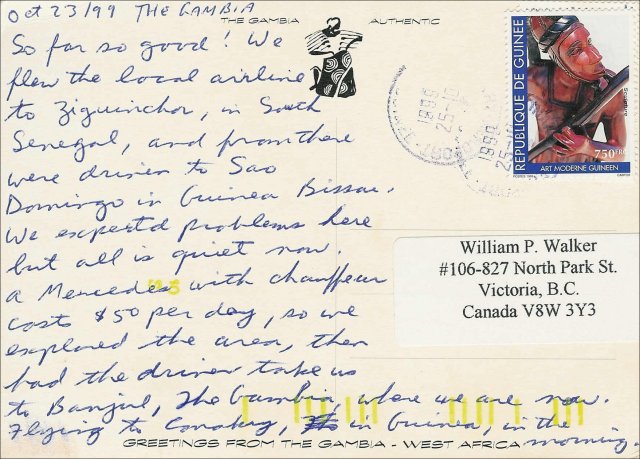 Oct 23/99 THE GAMBIA
THE GAMBIA AUTHENTIC
So far so good! We
flew the local airline
to Ziguinchor, in South
Senegal, and from there
were driven to Sao
Domingo in Guinea Bissau.
We expected problems here
but all is quiet now.
A Mercedes with chauffeur
costs $50 per day, so we
explored the area, then
had the driver take us
to Banjul, The Gambia, where we are now.
Flying to Conakry, in Guinea, in the
morning.
GREETINGS FROM THE GAMBIA - WEST AFRICA
REPUBLIQUE DE GUINEE
750FG
ART MODERNE GUINEEN
1999
25-10
1999
25-
William P. Walker
#106-827 North Park St.
Victoria, B.C.
Canada V8W 3Y3